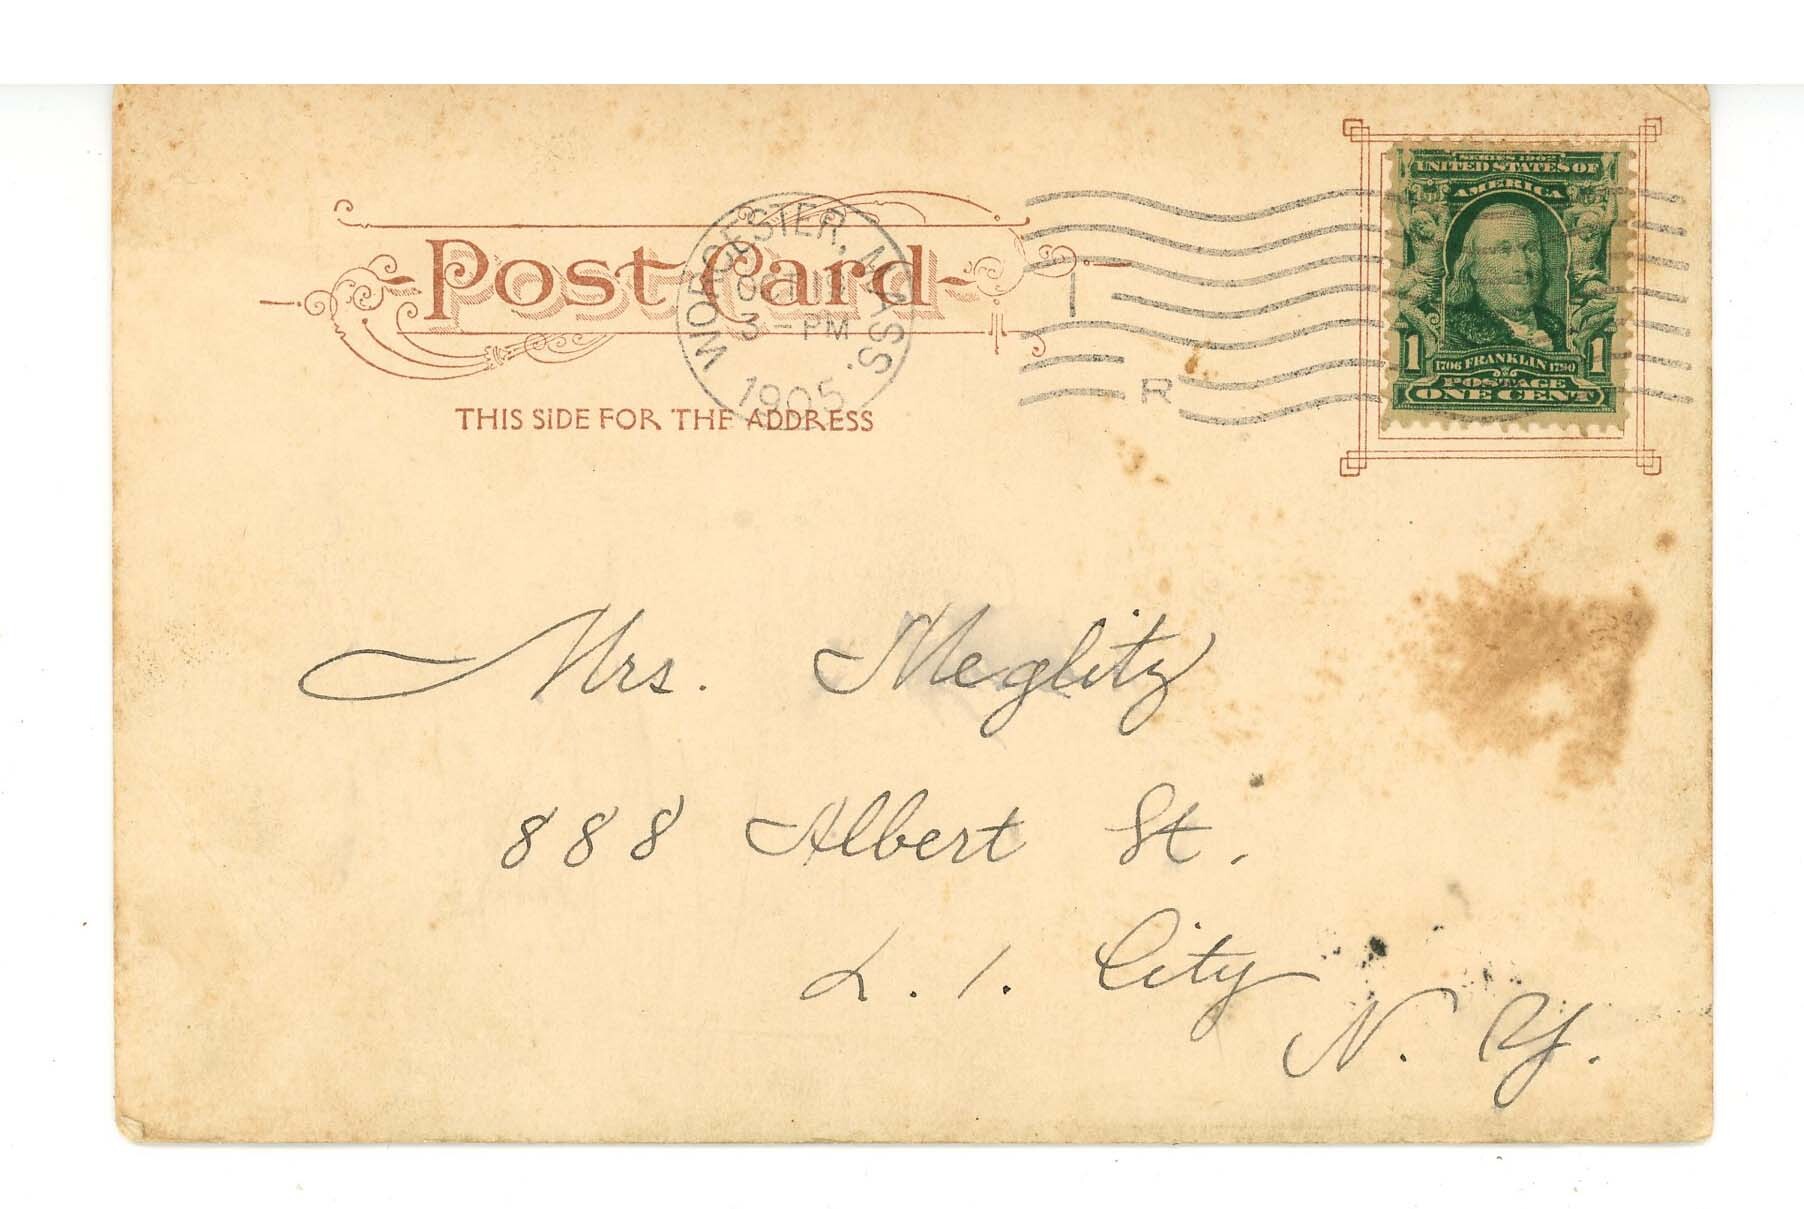 Post Card
THIS SIDE FOR THE ADDRESS
WORCESTER, MASS.
OCT
3 - PM
1905
1
R
SERIES 1902
UNITED STATES OF
AMERICA
1706 FRANKLIN 1790
POSTAGE
1 1
ONE CENT
Mrs. Meglitz
888 Albert St.
L. I. City
N. Y.